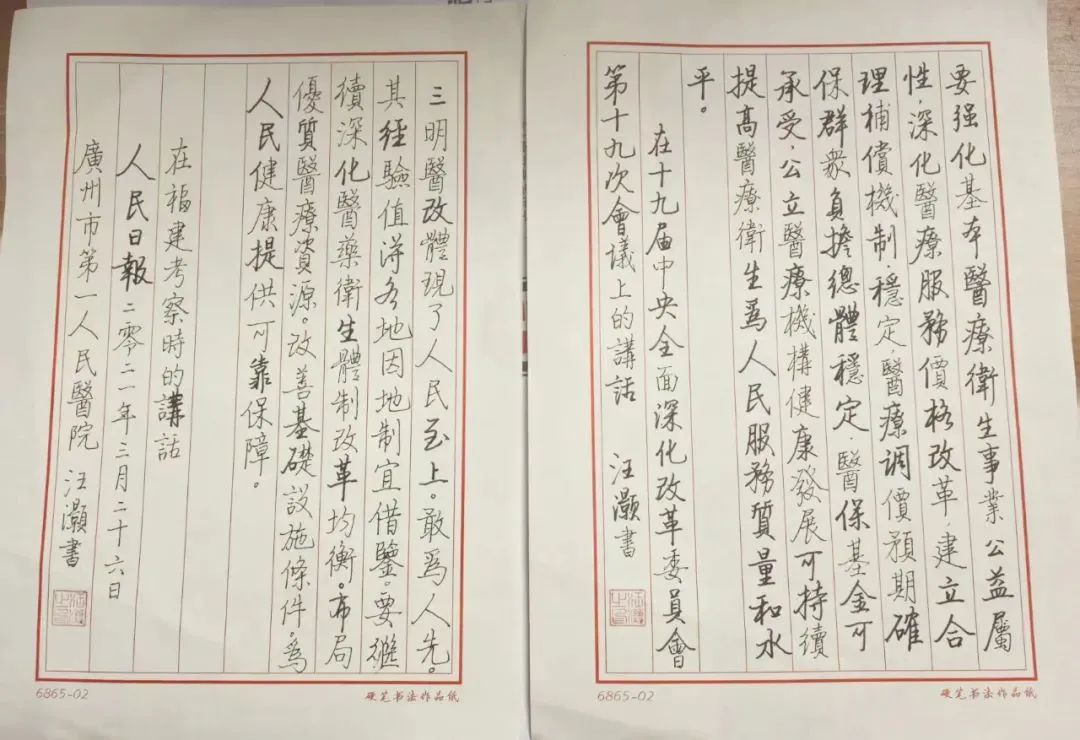 要强化基本醫療衛生事業公益屬
性,深化醫療服務價格改革,建立合
理補償機制,穩定醫療調價預期確
保群衆負擔總體穩定,醫保基金可
承受,公立醫療機構健康發展可持續
提高醫療衛生爲人民服務質量和水
平。
在十九届中央全面深化改革委員會
第十九次會議上的講話 汪灝書
6865-02
硬笔书法作品纸
三明醫改體現了人民至上。敢爲人先。
其經驗值得各地因地制宜借鑒。要繼
續深化醫藥衛生體制改革均衡。布局
優質醫療資源。改善基礎設施條件。爲
人民健康提供可靠保障。
在福建考察時的講話
人民日報二零二一年三月二十六日
廣州市第一人民醫院 汪灝書
6865-02
硬笔书法作品纸